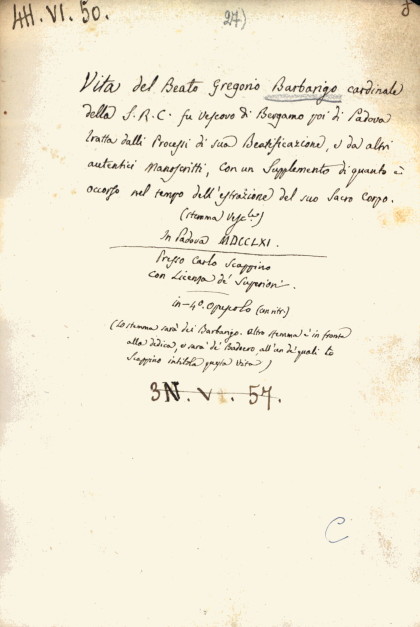 4H. VI. 50.
27)
Vita del Beato Gregorio Barbarigo cardinale
della S. R. C. fu Vescovo di Bergamo poi di Padova
tratta dalli Processi di sua Beatificazione, e da altri
autentici Manoscritti, con un Supplemento di quanto è
occorso nel tempo dell'estrazione del suo Sacro Corpo.
(stemma Vesc.le)
In Padova MDCCLXI.
Presso Carlo Scappino
con Licenza de' Superiori.
in-4º. Opuscolo
(Lo stemma sarà dei Barbarigo. Altro stemma è in fronte
alla dedica, e sarà de' Badoero, all'un de' quali lo
Scappino intitola questa Vita)
3N. VI. 57.
C